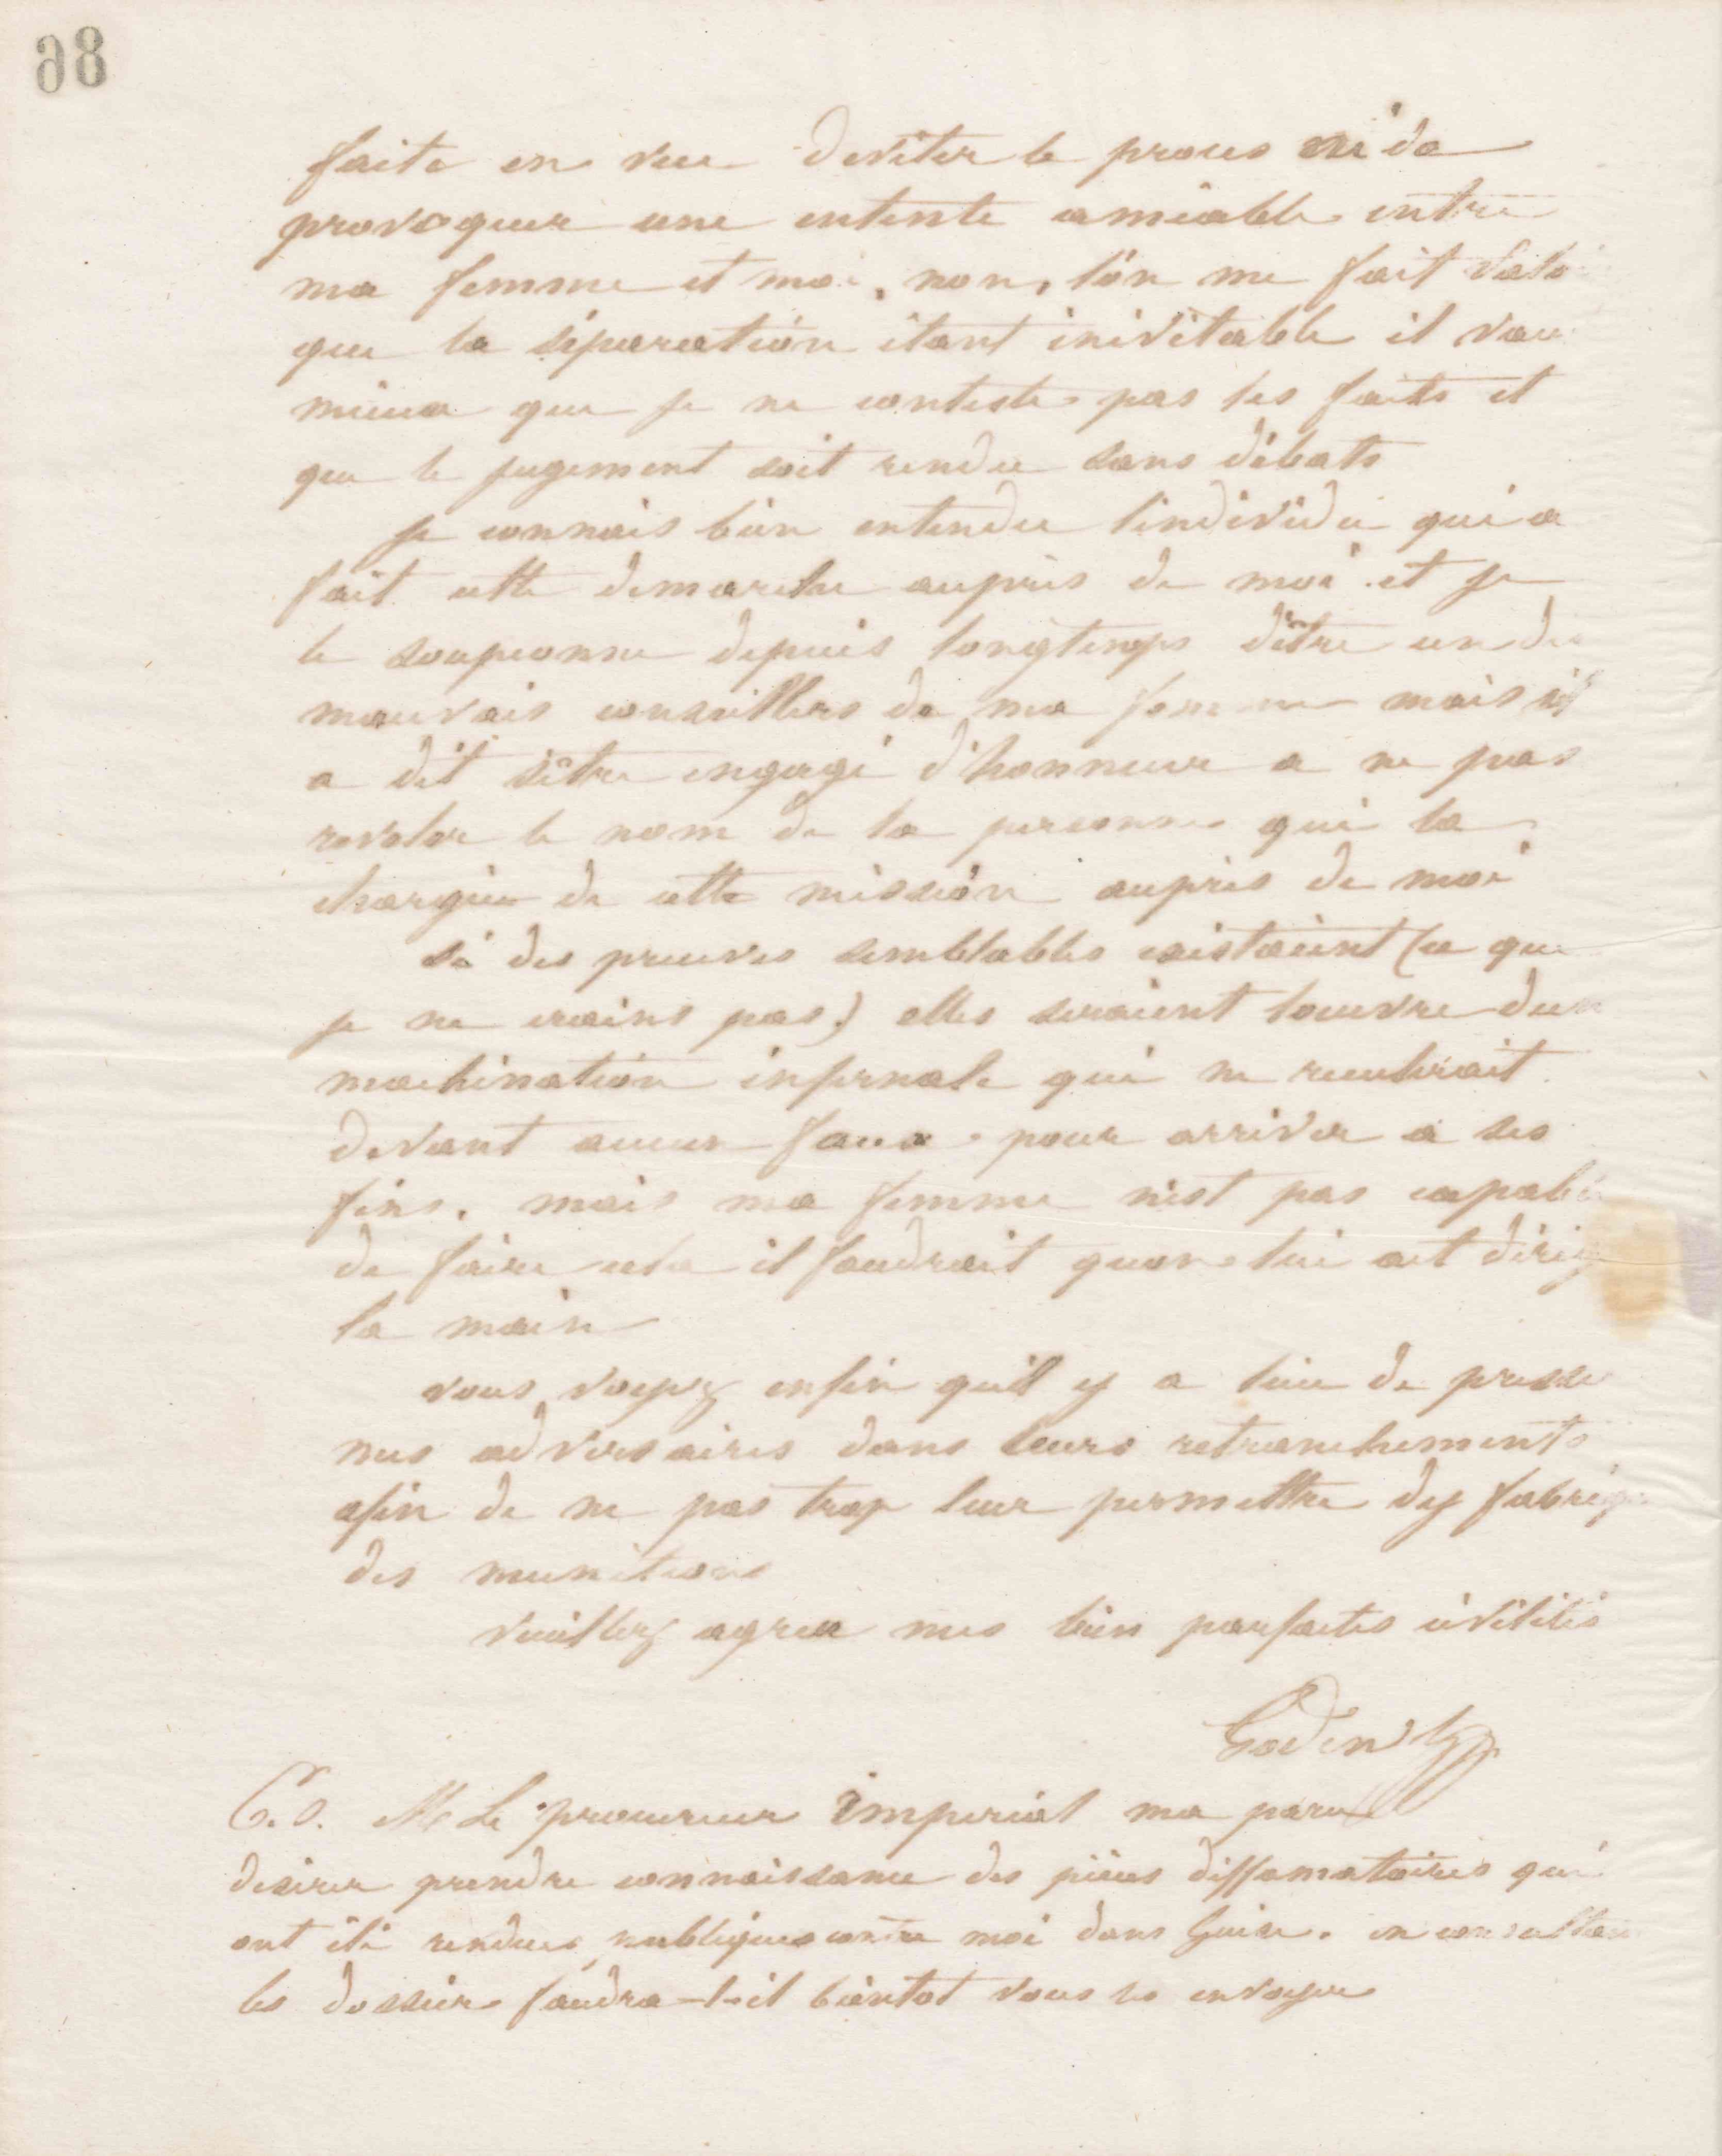 98
faite en vue deviter le proces ni de
provoquer une entente amiable entre
ma femme et moi, non, l'on me fait valo
que la séparation étant inévitable il vau
mieux que je ne conteste pas les faits et
que le jugement soit rendu sans débats
je connais bien entendu lindividu qui a
fait cette demarche auprès de moi et je
le soupconne depuis longtemps d'être un des
mauvais conseillers de ma femme mais il
a dit s'être engagé d'honneur a ne pas
reveler le nom de la personne qui la
chargée de cette mission auprès de moi
si des preuves semblables existaient (ce que
je ne crains pas) elles seraient louvre dun
machination infernale qui ne reculerait
devant aucun faux pour arriver a ses
fins. mais ma femme n'est pas capable
de faire cela il faudrait quon lui ait dirig
la main
vous voyez enfin quil y a lieu de presser
nos adversaires dans leurs retranchements
afin de ne pas trop leur permettre dy fabriq
des munitions
veuillez agreer mes bien parfaites civilités
Godin
P.S. Mr Le procureur imperial ma paru
desirer prendre connaissance des pièces diffamatoires qui
ont été rendues publiques contre moi dans Guise. en consultan
les dossier faudra-t-il bientot vous les envoyer